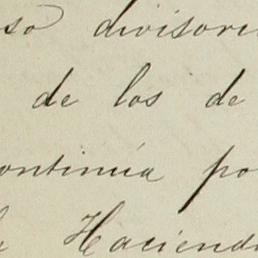 so divisori
de los de
ontinúa po
Haciend